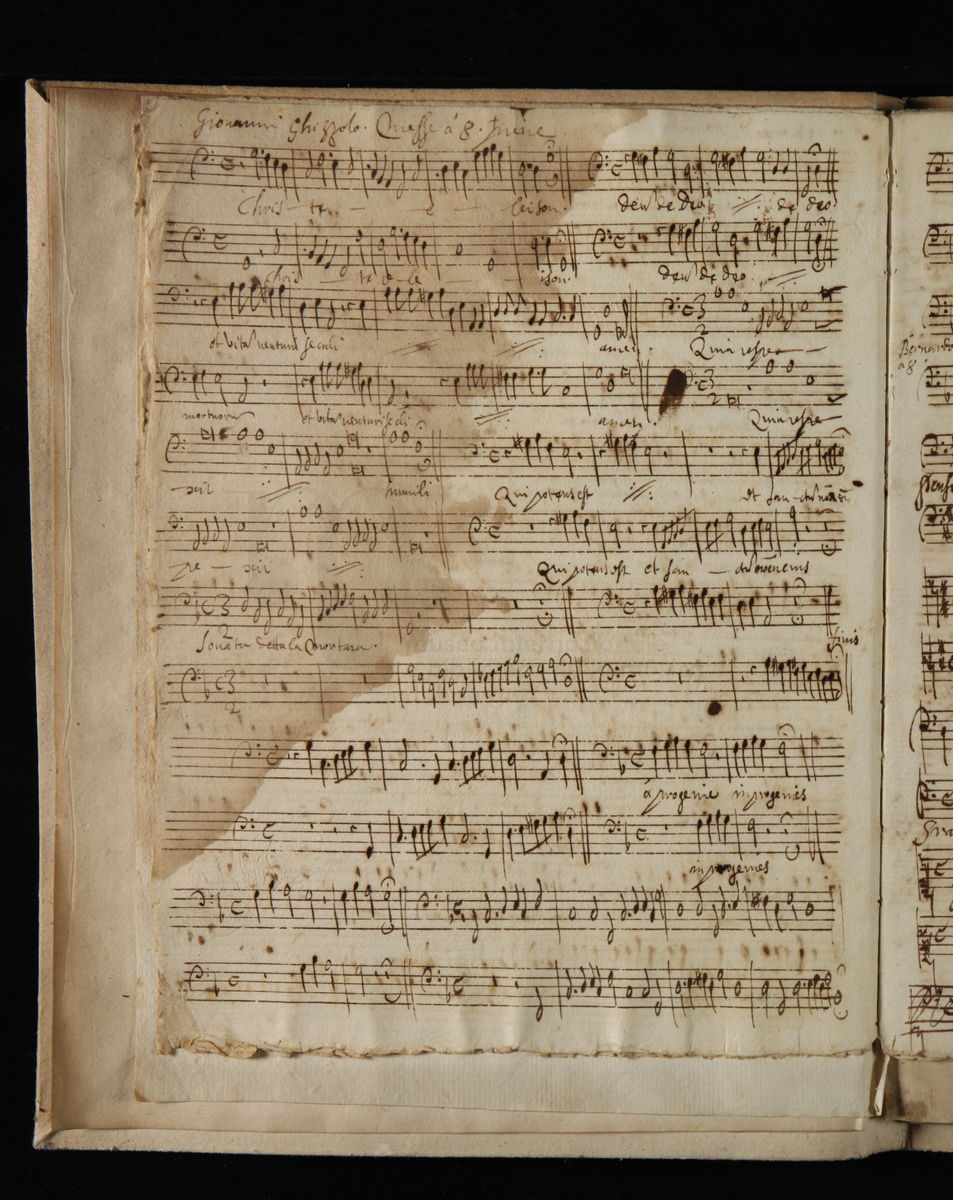 Giovanni Ghizzolo. Messe à 8.
Chris - te - e - leison.
deu de deo de deo
Chris - te e le - ison.
deu de deo
et vita venturi seculi
amen.
Qui respe -
mortuoru
et vita venturi seculi
amen.
Qui respe
- xit
humili
Qui potens est
et san - ctu nomen
pe - xit
Qui potens est et san - ctu nomen eius
Sonata detta la Montara.
finis
à progenie in progenies
in progenies
Bernardo
à 8